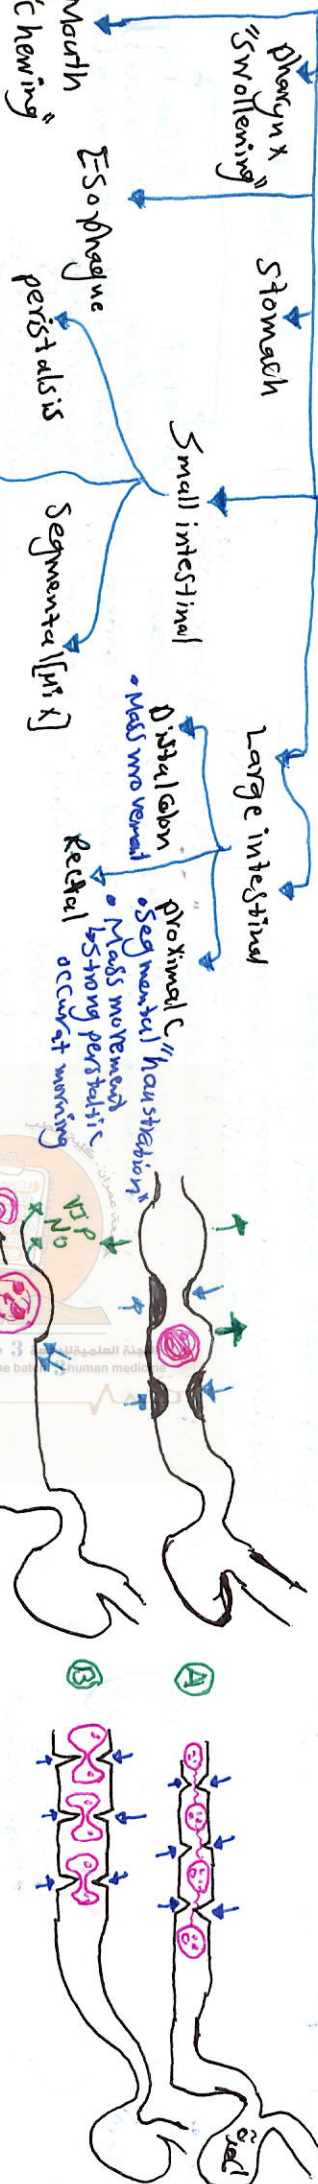 Mouth
"chewing"
pharynx
"swollening"
Esophague
Stomach
Small intestinal
peristalsis
Segmental [Mix]
Large intestinal
Distal colon
• Mass movement
Rectal
proximal C
• Segmental "haustration"
• Mass movement
↳ Strong perstaltic
occur at morning
VIP
NO
3
human medicine
A
B
معدة